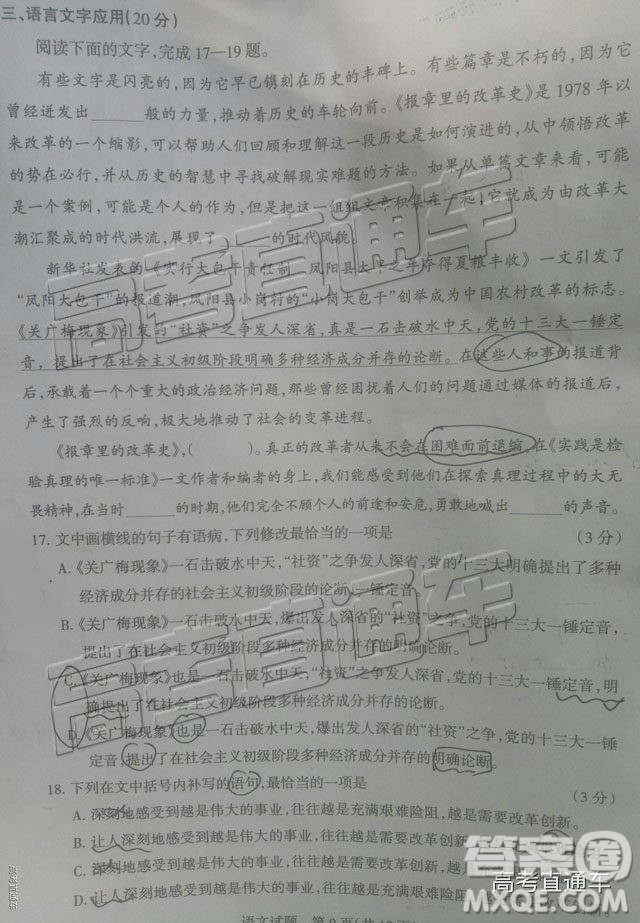 三、语言文字应用(20分)
阅读下面的文字,完成17—19题。
有些文字是闪亮的,因为它早已镌刻在历史的丰碑上。有些篇章是不朽的,因为它
曾经迸发出______般的力量,推动着历史的车轮向前。《报章里的改革史》是1978年以
来改革的一个缩影,可以帮助人们回顾和理解一些重大历史是如何演进的,从中领悟改革
的势在必行,并从历史的智慧中寻找破解现实难题的方法。如果从单篇文章来看,可能
是一个案例,可能是个人的作为,但是将这一组组文章积集在一起,它就成为由改革大
潮汇聚成的时代洪流,展现了______的时代风貌。
新华社发表的《实行大包干责任制 凤阳县土旱之年夺得夏粮丰收》一文引发了
“凤阳大包干”的报道潮,凤阳县小岗村的“小岗大包干”创举成为中国农村改革的标志。
《关广梅现象》引发的“社资”之争发人深省,真是一石击破水中天,党的十三大一锤定
音,提出了在社会主义初级阶段明确多种经济成分并存的论断。在这些人和事的报道背
后,承载着一个个重大的政治经济问题,那些曾经困扰着人们的问题通过媒体的报道后,
产生了强烈的反响,极大地推动了社会的变革进程。
《报章里的改革史》,( )。真正的改革者从来不会在困难面前退缩,在《实践是检
验真理的唯一标准》一文作者和编者的身上,我们能感受到他们在探索真理过程中的大无
畏精神,在当时______的时期,他们完全不顾个人的前途和安危,勇敢地喊出______的声音。
17. 文中画横线的句子有语病,下列修改最恰当的一项是 (3分)
A.《关广梅现象》一石击破水中天,“社资”之争发人深省,党的十三大明确提出了多种
经济成分并存的在社会主义初级阶段的论断,一锤定音。
B.《关广梅现象》一石击破水中天,爆出发人深省的“社资”之争,党的十三大一锤定音,
提出了在社会主义初级阶段多种经济成分并存的明确论断。
C.《关广梅现象》也是一石击破水中天,“社资”之争发人深省,党的十三大一锤定音,明
确提出了在社会主义初级阶段多种经济成分并存的论断。
D.《关广梅现象》也是一石击破水中天,爆出发人深省的“社资”之争,党的十三大一锤
定音,提出了在社会主义初级阶段多种经济成分并存的明确论断。
18. 下列在文中括号内补写的语句,最恰当的一项是 (3分)
A. 深刻地感受到越是伟大的事业,往往越是充满艰难险阻,越是需要改革创新。
B. 让人深刻地感受到越是伟大的事业,往往越是充满艰难险阻,越需要改革创新。
C. 深刻地感受到越是伟大的事业,往往越是充满艰难险阻,越需要
D. 让人深刻地感受到越是伟大的事业,往往越是充满艰难险阻,
语文试题 第9页
高考直通车
答案圈
高考直通车